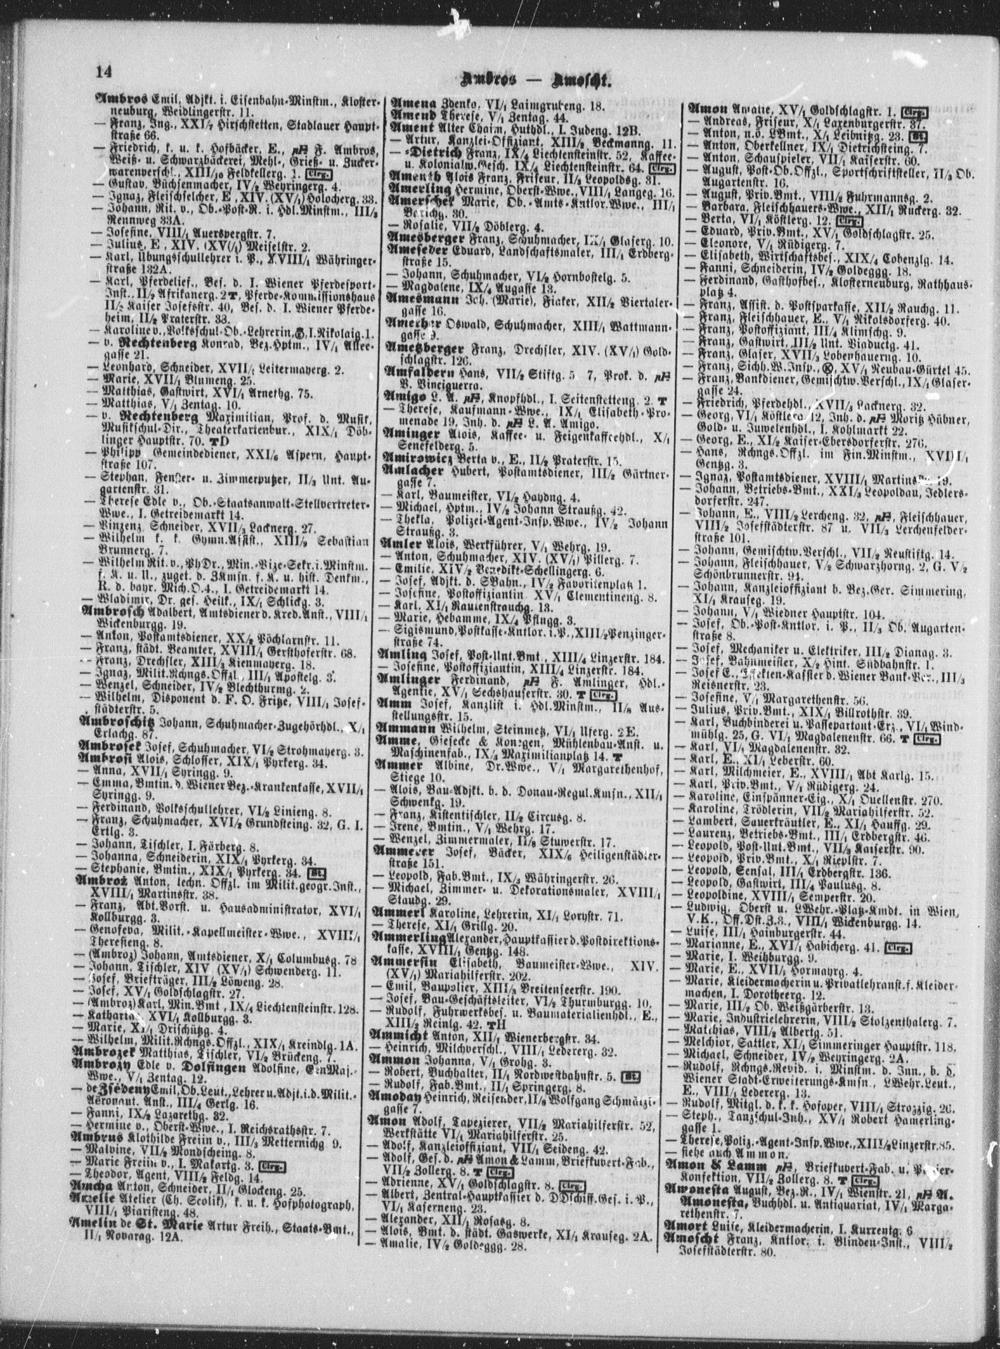 14
Ambros — Amoscht.
Ambros Emil, Adjkt. i. Eisenbahn-Minstm., Kloster-
neuburg, Weidlingerstr. 11.
— Franz, Ing., XXI/₂ Hirschstetten, Stadlauer Haupt-
straße 66.
— Friedrich, k. u. k. Hofbäcker, E., F. Ambros,
Weiß- u. Schwarzbäckerei, Mehl-, Grieß- u. Zucker-
warenverschl., XIII/₁₀ Feldkellerg. 1. Clrg.
— Gustav, Büchsenmacher, IV/₂ Weyringerg. 4.
— Ignaz, Fleischselcher, E., XIV. (XV/₁) Holocherg. 33.
— Johann, Rit. v., Ob.-Post-R. i. Hdl.Minstm., III/₂
Rennweg 33A.
— Josefine, VIII/₁ Auerspergstr. 7.
— Julius, E., XIV. (XV/₁) Meiselstr. 2.
— Karl, Übungsschullehrer i. P., XVIII/₁ Währinger-
straße 132A.
— Karl, Pferdelief., Bes. d. I. Wiener Pferdesport-
Inst., II/₂ Afrikanerg. 2 T, Pferde-Kommissionshaus
II/₂ Kaiser Josefsstr. 40, Bes. d. I. Wiener Pferde-
heim, II/₂ Praterstr. 33.
— Karoline v., Volksschul-Ob.-Lehrerin, I. Nikolaig. 1.
— v. Rechtenberg Konrad, Bez.Hptm., IV/₁ Allee-
gasse 21.
— Leonhard, Schneider, XVII/₁ Leitermayerg. 2.
— Marie, XVII/₁ Blumeng. 25.
— Matthias, Gastwirt, XVI/₁ Arnethg. 75.
— Matthias, V/₁ Zentag. 10.
— v. Rechtenberg Maximilian, Prof. d. Musik,
Musikschul-Dir., Theaterkartenbur., XIX/₁ Döb-
linger Hauptstr. 70. T D
— Philipp Gemeindediener, XXI/₆ Aspern, Haupt-
straße 107.
— Stephan, Fenster- u. Zimmerputzer, II/₃ Unt. Au-
gartenstr. 31.
— Therese Edle v., Ob.-Staatsanwalt-Stellvertreter-
Wwe., I. Getreidemarkt 14.
— Vinzenz, Schneider, XVII/₃ Lacknerg. 27.
— Wilhelm k. k. Gymn.Assist., XIII/₂ Sebastian
Brunnerg. 7.
— Wilhelm Rit. v., PhDr., Min.-Vize-Sekr. i. Minstm.
f. K. u. U., zuget. d. ZKmsn. f. K. u. hist. Denkm.,
R. d. bayr. Mich.O.4., I. Getreidemarkt 14.
— Wladimir, Dr. ges. Heilk., IX/₁ Schlickg. 3.
Ambrosch Adalbert, Amtsdiener d. Kred.Anst., VIII/₁
Wickenburgg. 19.
— Anton, Postamtsdiener, XX/₂ Pöchlarnstr. 11.
— Franz, städt. Beamter, XVIII/₁ Gersthoferstr. 68.
— Franz, Drechsler, XIII/₃ Kienmayerg. 18.
— Ignaz, Milit.Rchngs.Offzl., III/₁ Apostelg. 3.
— Wenzel, Schneider, IV/₂ Blechturmg. 2.
— Wilhelm, Disponent d. F. O. Fritze, VIII/₁ Josef-
städterstr. 5.
Ambroschitz Johann, Schuhmacher-Zugehörhdl., X/₁
Erlachg. 87.
Ambrosek Josef, Schuhmacher, VI/₂ Strohmayerg. 3.
Ambrosi Alois, Schlosser, XIX/₂ Pyrkerg. 34.
— Anna, XVII/₁ Syringg. 9.
— Emma, Bmtin. d. Wiener Bez.-Krankenkasse, XVII/₁
Syringg. 9.
— Ferdinand, Volksschullehrer, VI/₂ Linieng. 8.
— Franz, Schuhmacher, XVI/₂ Grundsteing. 32, G. I.
Ertlg. 3.
— Johann, Tischler, I. Färberg. 8.
— Johanna, Schneiderin, XIX/₁ Pyrkerg. 34.
— Stephanie, Bmtin., XIX/₁ Pyrkerg. 34.
Ambroz Anton, techn. Offzl. im Milit.geogr.Inst.,
XVIII/₁ Martinsstr. 38.
— Franz, Abt.Vorst. u. Hausadministrator, XVI/₁
Kollburgg. 3.
— Genofeva, Milit.-Kapellmeister-Wwe., XVIII/₁
Theresieng. 8.
— (Ambroz) Johann, Amtsdiener, X/₁ Columbusg. 78
— Johann, Tischler, XIV (XV/₁) Schwenderg. 11.
— Josef, Briefträger, III/₂ Löweng. 28.
— Josef, XV/₁ Goldschlagstr. 27.
— (Ambroz) Karl, Min.Bmt., IX/₄ Liechtensteinstr. 128.
— Katharina, XVI/₁ Kollburgg. 3.
— Marie, X/₁ Drischützg. 4.
— Wilhelm, Milit.Rchngs.Offzl., XIX/₁ Kreindlg. 1A.
Ambrozek Matthias, Tischler, VI/₂ Brückeng. 7.
Ambrozy Edle v. Dolfingen Adolfine, GenMaj.-
Wwe., V/₁ Zentag. 12.
— de Zsédeny Emil, Ob.Leut., Lehrer u. Adjt. i. d. Milit.-
Aeronaut. Anst., III/₄ Gerlg. 16.
— Fanni, IX/₂ Lazarethg. 32.
— Hermine v., Oberst-Wwe., I. Reichsrathsstr. 7.
Ambrus Klothilde Freiin v., III/₃ Metternichg 9.
— Malvine, VII/₂ Mondscheing. 8.
— Marie Freiin v., I. Makartg. 3. Clrg.
— Theodor, Agent, VIII/₂ Feldg. 14.
Amcha Anton, Schneider, II/₁ Glockeng. 25.
Amelie Atelier (Th. Scolik), k. u. k. Hofphotograph,
VIII/₁ Piaristeng. 48.
Amelin de St. Marie Artur Freih., Staats-Bmt.,
II/₁ Novarag. 12A.
Amena Zdenko, VI/₁ Laimgrubeng. 18.
Amend Therese, V/₁ Zentag. 44.
Ament Alter Chaim, Huthdl., I. Judeng. 12B.
— Artur, Kanzlei-Offiziant, XIII/₂ Beckmanng. 11.
— -Dietrich Franz, IX/₄ Liechtensteinstr. 52, Kaffee-
u. Kolonialw.Gesch. IX/₄ Liechtensteinstr. 64. Clrg.
Amenth Alois Franz, Friseur, II/₂ Leopoldsg. 31.
Amerling Hermine, Oberst-Wwe., VIII/₁ Langeg. 16.
Amerscher Marie, Ob.-Amts-Kntlor.Wwe., III/₁
Berichg. 30.
— Rosalie, VII/₂ Döblerg. 4.
Amesberger Franz, Schuhmacher, IX/₁ Glaserg. 10.
Ameseder Eduard, Landschaftsmaler, III/₁ Erdberg-
straße 15.
— Johann, Schuhmacher, VI/₂ Hornbostelg. 5.
— Magdalene, IX/₄ Augasse 13.
Amesmann Joh. (Marie), Fiaker, XII/₂ Viertaler-
gasse 16.
Amecher Oswald, Schuhmacher, XIII/₁ Wattmann-
gasse 9.
Ametzberger Franz, Drechsler, XIV. (XV/₁) Gold-
schlagstr. 126.
Amfaldern Hans, VII/₂ Stiftg. 5 7, Prok. d.
B. Vinciguerra.
Amigo L. A., Knopfhdl., I. Seitenstetteng. 2. T
— Therese, Kaufmann-Wwe., IX/₁ Elisabeth-Pro-
menade 19, Inh. d. L. A. Amigo.
Aminger Alois, Kaffee- u. Feigenkaffeehdl., X/₁
Senefelderg. 5.
Amirowicz Berta v., E., II/₂ Praterstr. 15.
Amlacher Hubert, Postamtsdiener, III/₂ Gärtner-
gasse 7.
— Karl, Baumeister, VI/₂ Haydng. 4.
— Michael, Hptm., IV/₂ Johann Straußg. 42.
— Thekla, Polizei-Agent-Insp.Wwe., IV/₂ Johann
Straußg. 3.
Amler Alois, Werkführer, V/₁ Wehrg. 19.
— Anton, Schuhmacher, XIV. (XV/₂) Pillerg. 7.
— Emilie, XIV/₂ Benedikt-Schellingerg. 6.
— Josef, Adjkt. d. SBahn., IV/₂ Favoritenplatz 1.
— Josefine, Postoffiziantin, XV/₁ Clementineng. 8.
— Karl, XI/₁ Rautenstrauchg. 13.
— Marie, Hebamme, IX/₄ Pflugg. 3.
— Sigismund, Postkasse-Kntlor. i. P., XIII/₂ Penzinger-
straße 74.
Amling Josef, Post-Unt.Bmt., XIII/₄ Linzerstr. 184.
— Josefine, Postoffiziantin, XIII/₄ Linzerstr. 184.
Amlinger Ferdinand, F. Amlinger, Hdl.-
Agentie, XV/₁ Sechshauserstr. 30. T Clrg.
Amm Josef, Kanzlist i. Hdl.Minstm., II/₂ Aus-
stellungsstr. 15.
Ammann Wilhelm, Steinmetz, VI/₁ Uferg. 2E.
Amme, Giesecke & Konegen, Mühlenbau-Anst. u.
Maschinenfab., IX/₄ Maximilianplatz 14. T
Ammer Albine, Dr.Wwe., V/₁ Margarethenhof,
Stiege 10.
— Alois, Bau-Adjkt. b. d. Donau-Regul.Kmsn., XII/₁
Schwenkg. 19.
— Franz, Kistentischler, II/₂ Circusg. 8.
— Irene, Bmtin., V/₁ Wehrg. 17.
— Wenzel, Zimmermaler, II/₂ Stuwerstr. 17.
Ammerer Josef, Bäcker, XIX/₆ Heiligenstädter-
straße 151.
— Leopold, Fab.Bmt., IX/₂ Währingerstr. 26.
— Michael, Zimmer- u. Dekorationsmaler, XVIII/₁
Staudg. 29.
Ammerl Karoline, Lehrerin, XI/₁ Lorystr. 71.
— Therese, XI/₁ Grillg. 20.
Ammerling Alexander, Hauptkassier d. Postdirektions-
kasse, XVIII/₁ Gentzg. 148.
Ammersin Elisabeth, Baumeister-Wwe., XIV.
(XV/₁) Mariahilferstr. 202.
— Emil, Baupolier, XIII/₂ Breitenseerstr. 190.
— Josef, Bau-Geschäftsleiter, VI/₂ Thurmburgg. 10.
— Rudolf, Fuhrwerksbes. u. Baumaterialienhdl., E.,
XIII/₂ Reinlg. 42. T H
Ammicht Anton, XII/₁ Wienerbergstr. 34.
— Heinrich, Milchverschl., VIII/₁ Ledererg. 32.
Ammon Johanna, V/₁ Grohg. 3.
— Robert, Buchhalter, II/₁ Nordwestbahnstr. 5.
— Rudolf, Fab.Bmt., II/₁ Springerg. 8.
Amoday Heinrich, Reisender, II/₂ Wolfgang Schmälzl-
gasse 7.
Amon Adolf, Tapezierer, VII/₂ Mariahilferstr. 52,
Werkstätte VI/₁ Mariahilferstr. 25.
— Adolf, Kanzleioffiziant, VII/₁ Seideng. 42.
— Adolf, Ges. d. Amon & Lamm, Briefkuvert-Fab.,
VII/₂ Zollerg. 8. T Clrg.
— Adrienne, XV/₁ Goldschlagstr. 8. Clrg.
— Albert, Zentral-Hauptkassier d. DDschiff.Ges. i. P.,
VI/₁ Kaserneng. 23.
— Alexander, XII/₁ Rosasg. 8.
— Alois, Bmt. d. städt. Gaswerke, XI/₁ Krauseg. 2A.
— Amalie, IV/₂ Goldeggg. 28.
Amon Amalie, XV/₁ Goldschlagstr. 1. Clrg.
— Andreas, Friseur, X/₁ Laxenburgerstr. 37.
— Anton, n.ö. LBmt., X/₁ Leibnitzg. 23.
— Anton, Oberkellner, IX/₁ Dietrichsteing. 7.
— Anton, Schauspieler, VII/₁ Kaiserstr. 60.
— August, Post-Ob.Offzl., Sportschriftsteller, II/₃ Ob.
Augartenstr. 16.
— August, Priv.Bmt., VIII/₂ Fuhrmannsg. 2.
— Barbara, Fleischhauers-Wwe., XII/₁ Ruckerg. 32.
— Berta, VI/₁ Köstlerg. 12. Clrg.
— Eduard, Priv.Bmt., XV/₁ Goldschlagstr. 25.
— Eleonore, V/₁ Rüdigerg. 7.
— Elisabeth, Wirtschaftsbes., XIX/₄ Cobenzlg. 14.
— Fanni, Schneiderin, IV/₂ Goldeggg. 18.
— Ferdinand, Gasthofbes., Klosterneuburg, Rathhaus-
platz 4.
— Franz, Assist. d. Postsparkasse, XII/₂ Rauchg. 11.
— Franz, Fleischhauer, E., V/₁ Nikolsdorferg. 40.
— Franz, Postoffiziant, III/₄ Klimschg. 9.
— Franz, Gastwirt, III/₂ Unt. Viaductg. 41.
— Franz, Glaser, XVII/₂ Lobenhauerng. 10.
— Franz, Sichh.W.Insp., XV/₁ Neubau-Gürtel 45.
— Franz, Bankdiener, Gemischtw.Verschl., IX/₁ Glaser-
gasse 24.
— Friedrich, Pferdehdl., XVII/₃ Lacknerg. 32.
— Georg, VI/₁ Köstlerg. 12, Inh. d. Moritz Hübner,
Gold- u. Juwelenhdl., I. Kohlmarkt 22.
— Georg, E., XI/₂ Kaiser-Ebersdorferstr. 276.
— Hans, Rchngs.Offzl. im Fin.Minstm., XVIII/₁
Gentzg. 3.
— Ignaz, Postamtsdiener, XVIII/₁ Martinsstr. 19.
— Johann, Betriebs-Bmt., XXI/₁ Leopoldau, Jedlers-
dorferstr. 247.
— Johann, E., VIII/₂ Lercheng. 32, Fleischhauer,
VIII/₂ Josefstädterstr. 87 u. VII/₂ Lerchenfelder-
straße 101.
— Johann, Gemischtw.Verschl., VII/₂ Neustiftg. 14.
— Johann, Fleischhauer, V/₂ Schwarzhorng. 2, G. V/₂
Schönbrunnerstr. 94.
— Johann, Kanzleioffiziant b. Bez.Ger. Simmering,
XI/₁ Krauseg. 19.
— Johann, V/₁ Wiedner Hauptstr. 104.
— Josef, Ob.-Post-Kntlor. i. P., II/₃ Ob. Augarten-
straße 8.
— Josef, Mechaniker u. Elektriker, III/₂ Dianag. 3.
— Josef, Bahnmeister, X/₂ Hint. Südbahnstr. 1.
— Josef E., Effekten-Kassier d. Wiener Bank-Ver., III/₃
Reisnerstr. 23.
— Josefine, V/₁ Margarethenstr. 56.
— Julius, Priv.Bmt., XIX/₁ Billrothstr. 39.
— Karl, Buchbinderei u. Passepartout-Erz., VI/₁ Wind-
mühlg. 25, G. VI/₁ Magdalenenstr. 66. T Clrg.
— Karl, VI/₁ Magdalenenstr. 32.
— Karl, E., XI/₁ Leberstr. 60.
— Karl, Milchmeier, E., XVIII/₁ Abt Karlg. 15.
— Karl, Priv.Bmt., V/₁ Rüdigerg. 24.
— Karoline, Einspänner-Eig., X/₁ Quellenstr. 270.
— Karoline, Trödlerin, VII/₂ Mariahilferstr. 52.
— Lambert, Sauerkräutler, E., XI/₁ Hauffg. 29.
— Laurenz, Betriebs-Bmt., III/₁ Erdbergstr. 46.
— Leopold, Post-Unt.Bmt., VII/₂ Kaiserstr. 90.
— Leopold, Priv.Bmt., X/₁ Rieplstr. 7.
— Leopold, Sensal, III/₁ Erdbergstr. 136.
— Leopold, Gastwirt, III/₄ Paulusg. 8.
— Leopoldine, XVIII/₁ Semperstr. 20.
— Ludwig, Oberst u. LWehr.-Platz-Kmdt. in Wien,
V.K., Off.Dst.Z.3., VIII/₁ Wickenburgg. 14.
— Luise, III/₁ Hainburgerstr. 44.
— Marianne, E., XVI/₁ Habicherg. 41. Clrg.
— Marie, I. Weihburgg. 9.
— Marie, E., XVII/₁ Hormayrg. 4.
— Marie, Kleidermacherin u. Privatlehranst. f. Kleider-
machen, I. Dorotheerg. 12.
— Marie, III/₂ Ob. Weißgärberstr. 13.
— Marie, Industrielehrerin, VIII/₂ Stolzenthalerg. 7.
— Matthias, VIII/₂ Albertg. 51.
— Melchior, Sattler, XI/₁ Simmeringer Hauptstr. 118.
— Michael, Schneider, IV/₂ Weyringerg. 2A.
— Rudolf, Rchngs.Revid. i. Minstm. d. Inn., b. d.
Wiener Stadt-Erweiterungs-Kmsn., LWehr.Leut.,
E., VIII/₁ Ledererg. 13.
— Rudolf, Mitgl. d. k. k. Hofoper, VIII/₁ Strozzig. 26.
— Steph., Tanzschul-Inh., XV/₁ Robert Hamerling-
gasse 1.
— Therese, Poliz.-Agent-Insp.Wwe., XIII/₂ Linzerstr. 85.
— siehe auch Ammon.
Amon & Lamm, Briefkuvert-Fab. u. Papier-
Konfektion, VII/₂ Zollerg. 8. T Clrg.
Amonesta August, Bez.R., IV/₁ Wienstr. 21, A.
Amonesta, Buchhdl. u. Antiquariat, IV/₁ Marga-
rethenstr. 7.
Amort Luise, Kleidermacherin, I. Kurrentg. 6
Amoscht Franz, Kntlor. i. Blinden-Inst., VIII/₂
Josefstädterstr. 80.